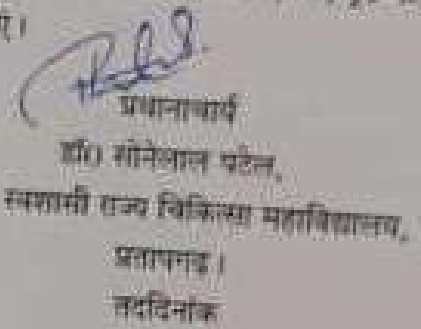 प्रधानाचार्य
डॉ0 सोनेलाल पटेल,
स्वशासी राज्य चिकित्सा महाविद्यालय,
प्रतापगढ़।
तददिनांक